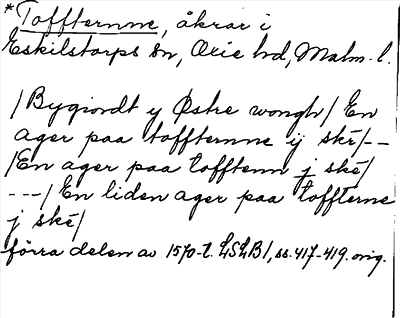 *Toffternne, åkrar i
Eskilstorps sn, Oxie hd, Malm. l.
/Bygiordt y Østre wongh/ En
ager paa toffternne ij ske/--
/En ager paa tofftenn j ské/
---/ En liden ager paa toffterne
j ské/
förra delen av 1570-t. LSLB1, ss. 417-419. orig.